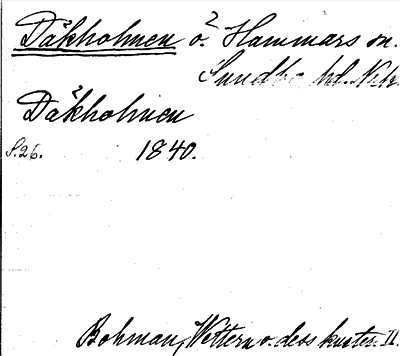 Dåkholmen ö. Hammars sn.
Sundbo hd. Nrk.
Dåkholmen
S.26. 1840.
Bohman, Wettern o. dess kuster. II.